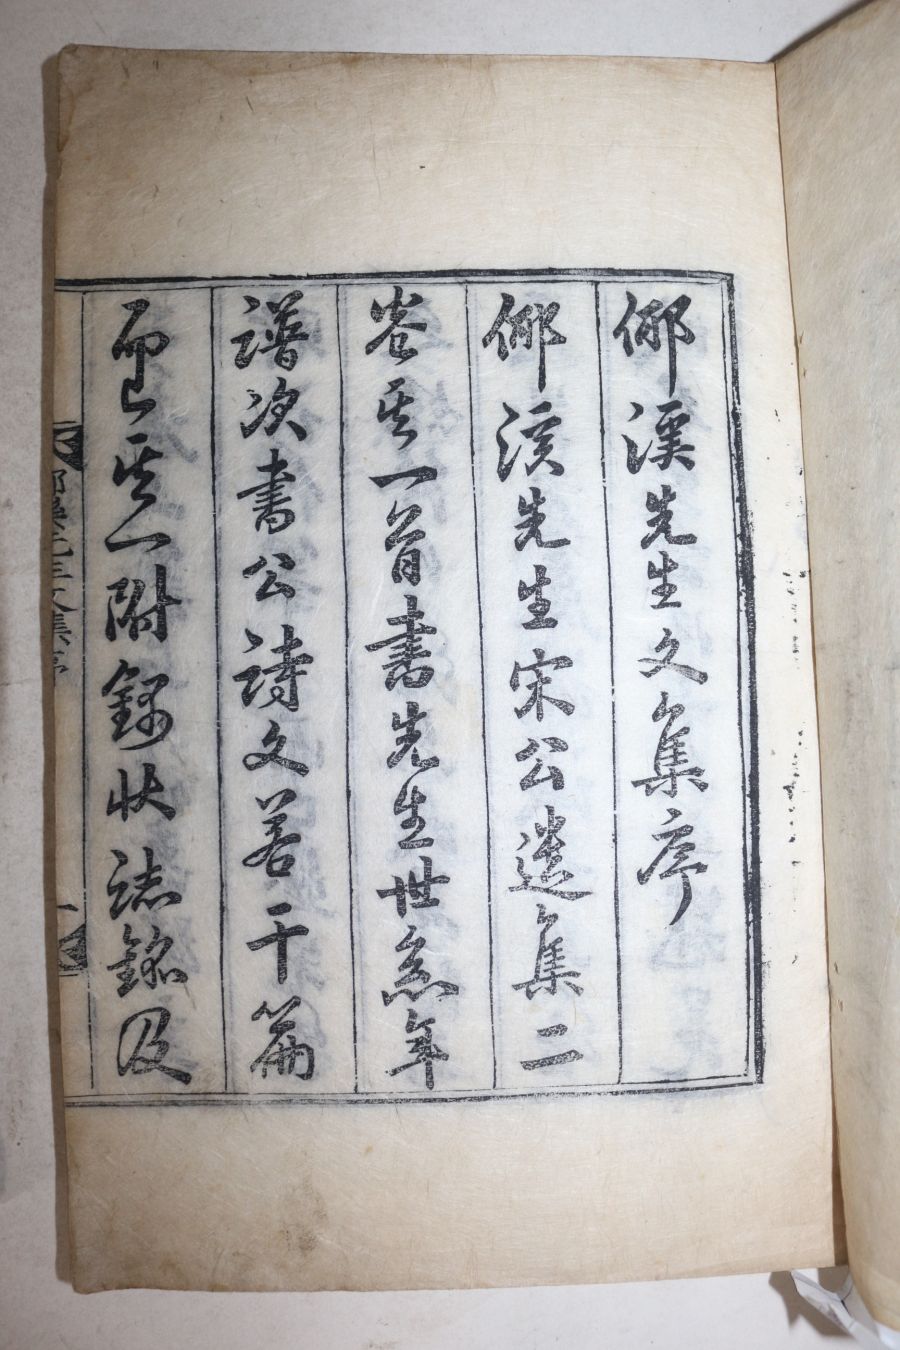 倻溪先生文集序
倻溪先生宋公遺集二
卷其一首書先生世系年
譜次書公詩文若干篇
而已其一附錄狀誌銘及
倻溪先生文集序
一